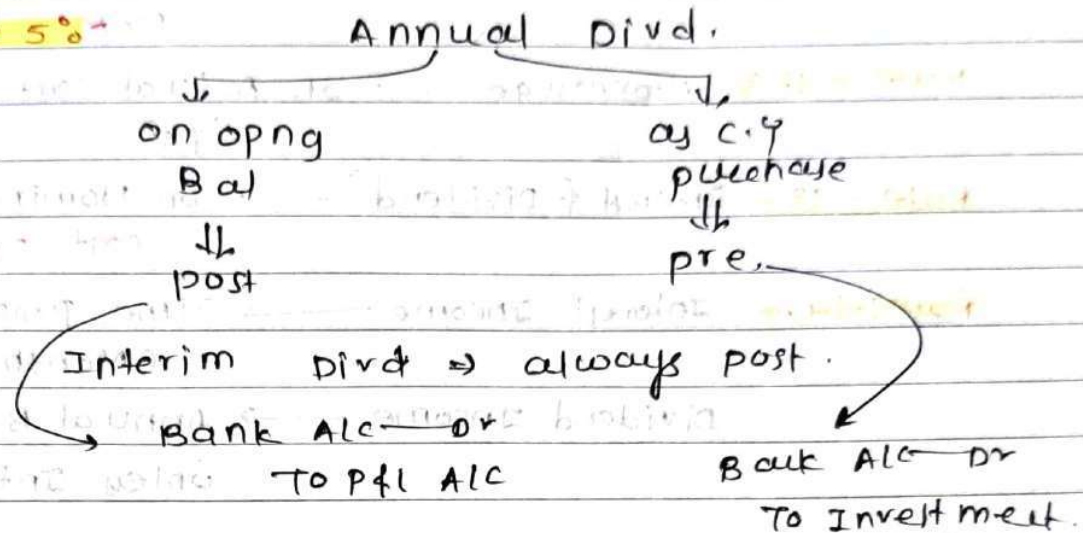 5%
Annual Divd.
on opng
Bal
post
as C.Y
purchase
pre.
Interim Divd ⇒ always post.
Bank A/c Dr
To P&L A/C
Bank A/c Dr
To Investment.